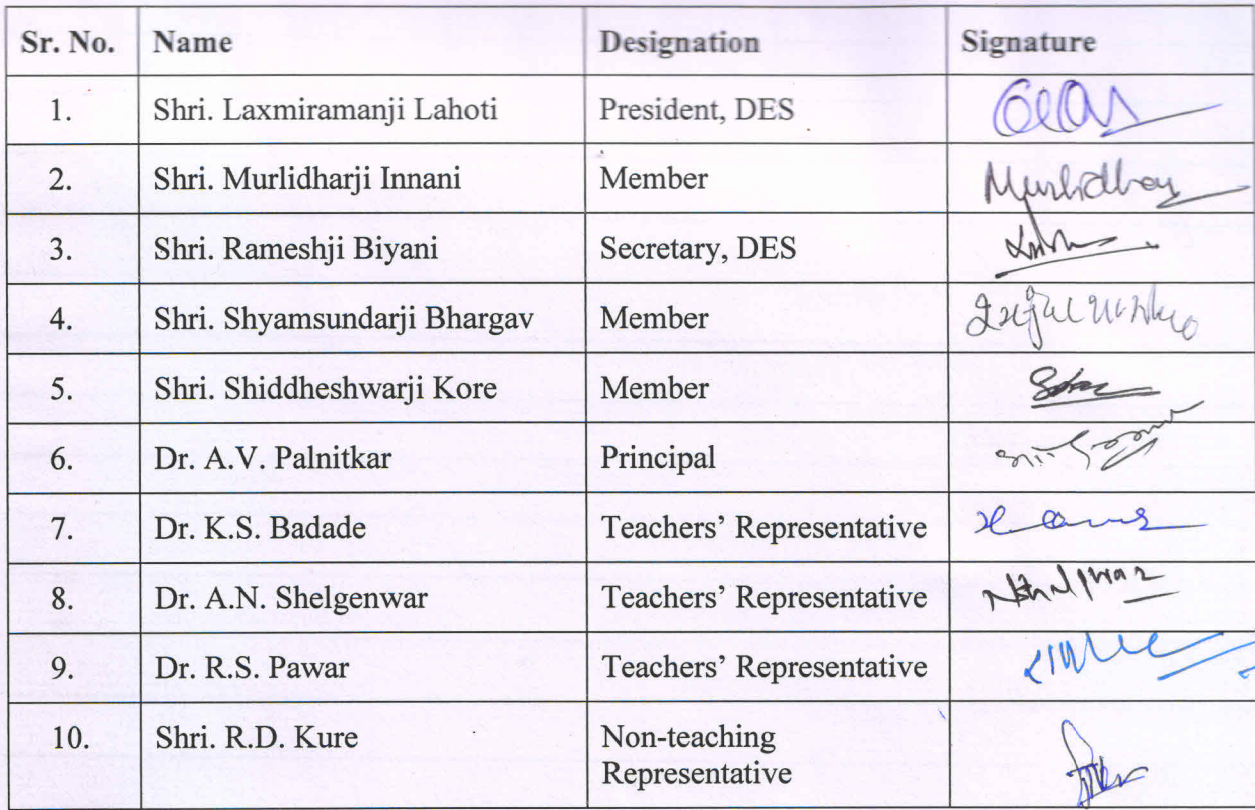 Sr. No. Name Designation Signature
1. Shri. Laxmiramanji Lahoti President, DES
2. Shri. Murlidharji Innani Member Murlidhar
3. Shri. Rameshji Biyani Secretary, DES
4. Shri. Shyamsundarji Bhargav Member
5. Shri. Shiddheshwarji Kore Member
6. Dr. A.V. Palnitkar Principal
7. Dr. K.S. Badade Teachers’ Representative
8. Dr. A.N. Shelgenwar Teachers’ Representative
9. Dr. R.S. Pawar Teachers’ Representative
10. Shri. R.D. Kure Non-teaching
Representative